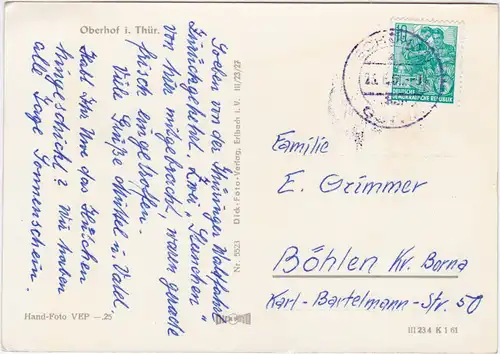 Oberhof i. Thür.
Soeben von der Thüringer Waldfahrt
zurückgekehrt. Zwei „Stündchen"
von hier mitgebracht, waren gerade
frisch eingetroffen.
Viele Grüße Muttel u. Vald.
Habt Ihr Um das
hingeschickt? Wir haben
alle Tage Sonnenschein.
Dick-Foto-Verlag, Erlbach i. V. III/23/27
Nr. 5523
Hand-Foto VEP -.25
10
DEUTSCHE
DEMOKRATISCHE REPUBLIK
Familie
E. Grimmer
Böhlen Kr. Borna
Karl-Bartelmann-Str. 50
III 23 4 K 1 61